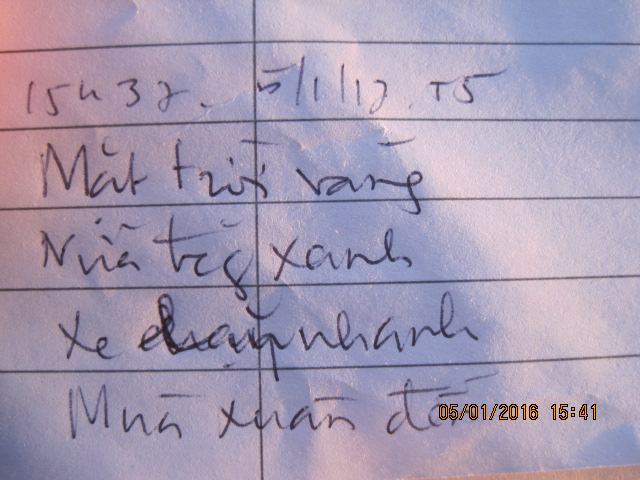 15h37. 5/1/17. T5
Mặt trời vàng
Nửa trăng xanh
Xe chạy nhanh
Mùa xuân đến
05/01/2016 15:41